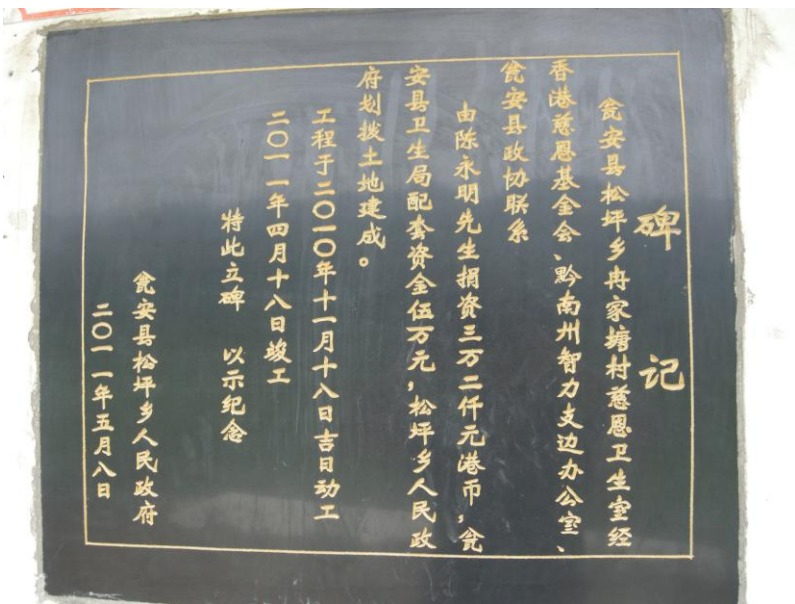 碑记
瓮安县松坪乡冉家塘村慈恩卫生室经
香港慈恩基金会、黔南州智力支边办公室、
瓮安县政协联系
由陈永明先生捐资三万二仟元港币，瓮
安县卫生局配套资金伍万元，松坪乡人民政
府划拨土地建成。
工程于二〇一〇年十一月十八日吉日动工
二〇一一年四月十八日竣工
特此立碑 以示纪念
瓮安县松坪乡人民政府
二〇一一年五月八日